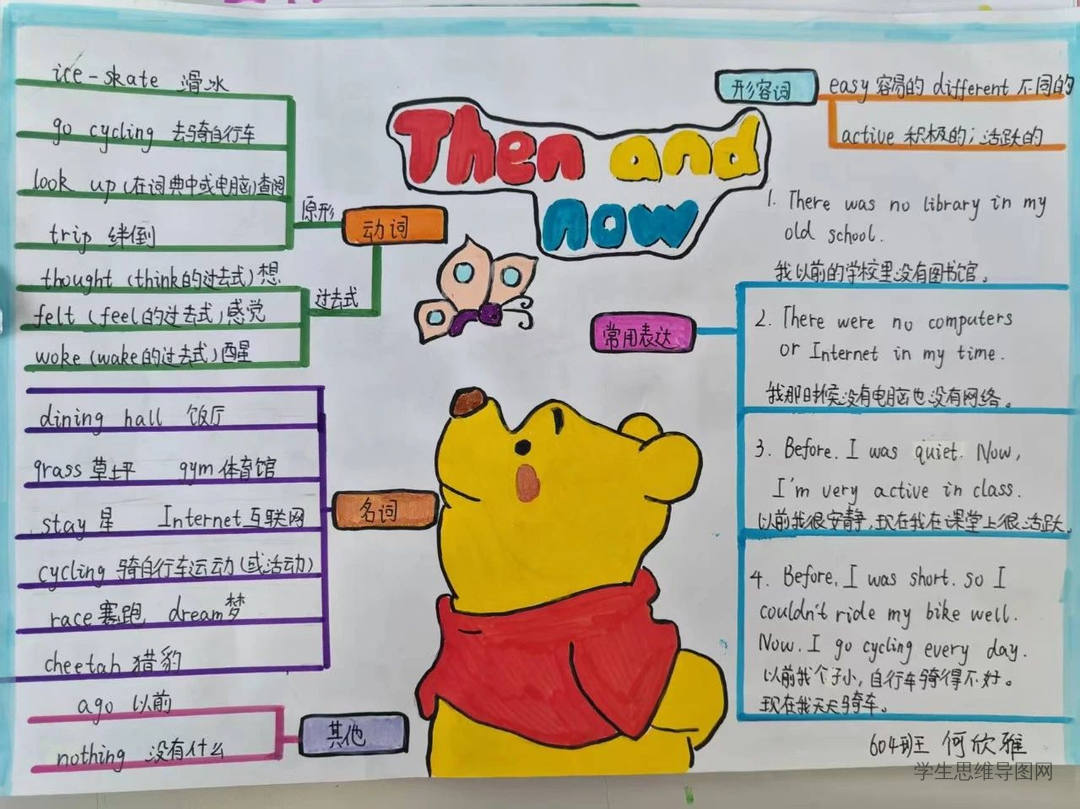 Then and
now
ice-skate 滑冰
go cycling 去骑自行车
look up (在词典中或电脑)查阅
trip 绊倒
原形
动词
thought (think的过去式)想
felt (feel的过去式)感觉
woke (wake的过去式)醒
过去式
dining hall 饭厅
grass 草坪 gym 体育馆
stay 星 Internet 互联网
cycling 骑自行车运动(或活动)
race 赛跑 dream 梦
cheetah 猎豹
名词
ago 以前
nothing 没有什么
其他
形容词
easy 容易的 different 不同的
active 积极的；活跃的
常用表达
1. There was no library in my
old school.
我以前的学校里没有图书馆。
2. There were no computers
or Internet in my time.
我那时候没有电脑也没有网络。
3. Before. I was quiet. Now,
I'm very active in class.
以前我很安静，现在我在课堂上很活跃。
4. Before, I was short. so I
couldn't ride my bike well.
Now. I go cycling every day.
以前我个子小，自行车骑得不好。
现在我天天骑车。
604班 何欣雅
学生思维导图网